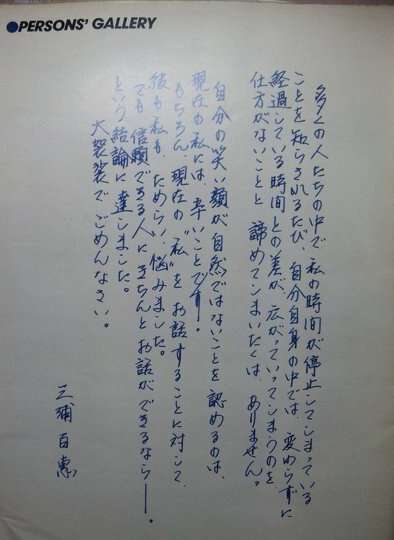 ●PERSONS' GALLERY
多くの人たちの中で、私の時間が停止してしまっている
ことを知らされるたび、自分自身の中では、変わらずに
経過している時間との差が、広がっていってしまうのを
仕方がないことと諦めてしまいたくは、ありません。
自分の笑い顔が自然ではないことを認めるのは、
現在の私には、辛いことです！
もちろん、現在の“私”をお話することに対して、
彼も私も、ためらい、悩みました。
でも信頼できる人にきちんとお話ができるなら──。
という結論に達しました。
大袈裟でごめんなさい。
三浦百惠